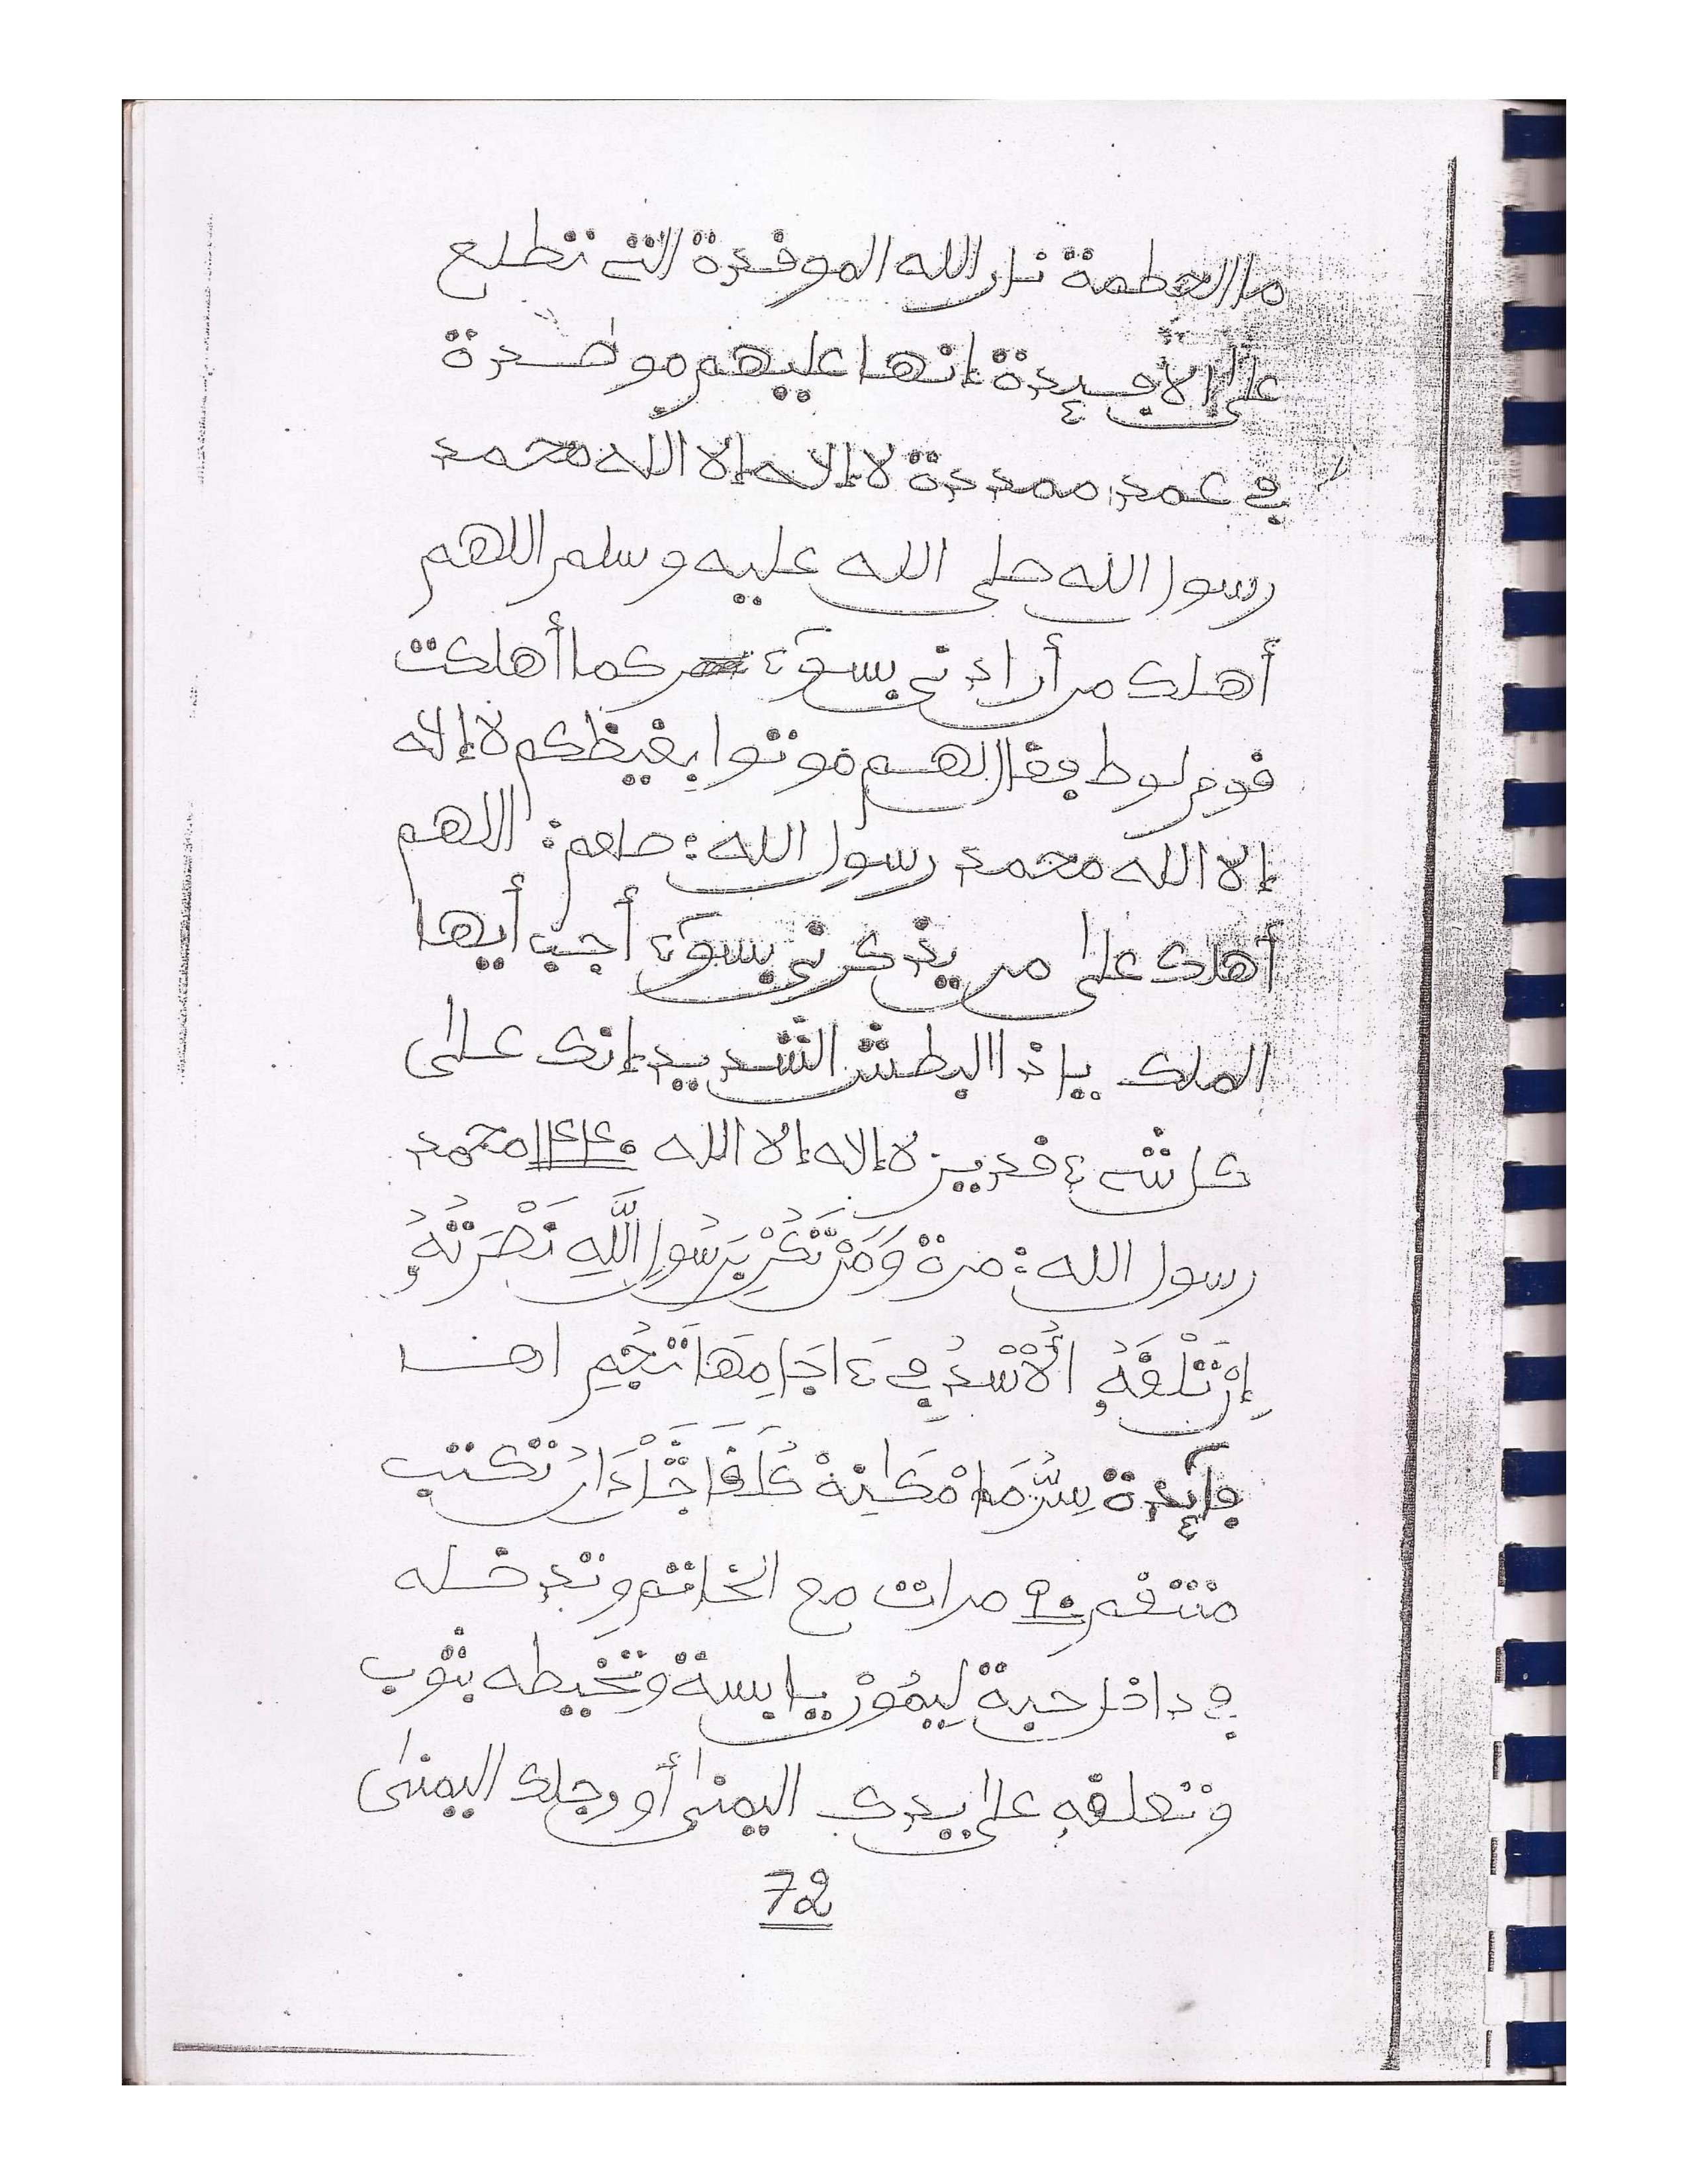 ما الحطمة نار الله الموقدة التي تطلع
على الأفئدة إنها عليهم موصدة
في عمد ممددة لا إلاه إلا الله محمد
رسول الله صلى الله عليه وسلم اللهم
أهلك من أرادني بسوء كما أهلكت
قوم لوط فقال لهم موتوا بغيظكم لا إله
إلا الله محمد رسول الله: صلعم: اللهم
أهلك على من يذكرني بسوء أجب أيها
الملك ياذا البطش الشديد إنك على
كل شيء قدير لا إله إلا الله محمد
رسول الله: مرة وَمَن تَكُنْ بِرَسُولِ اللَّهِ نَصْرَتُهُ
إِن تَلْقَهُ الْأُسْدُ في ءاجَامِهَا تَجُمِ اهـ
فآئدة تكتب
منتقم ٩٠ مرات مع الخاتم وتدخله
في داخل حبة لِيمُونْ يابسة وتخيطه بثوب
وتعلقه على يدك اليمنى أو رجلك اليمنى
72